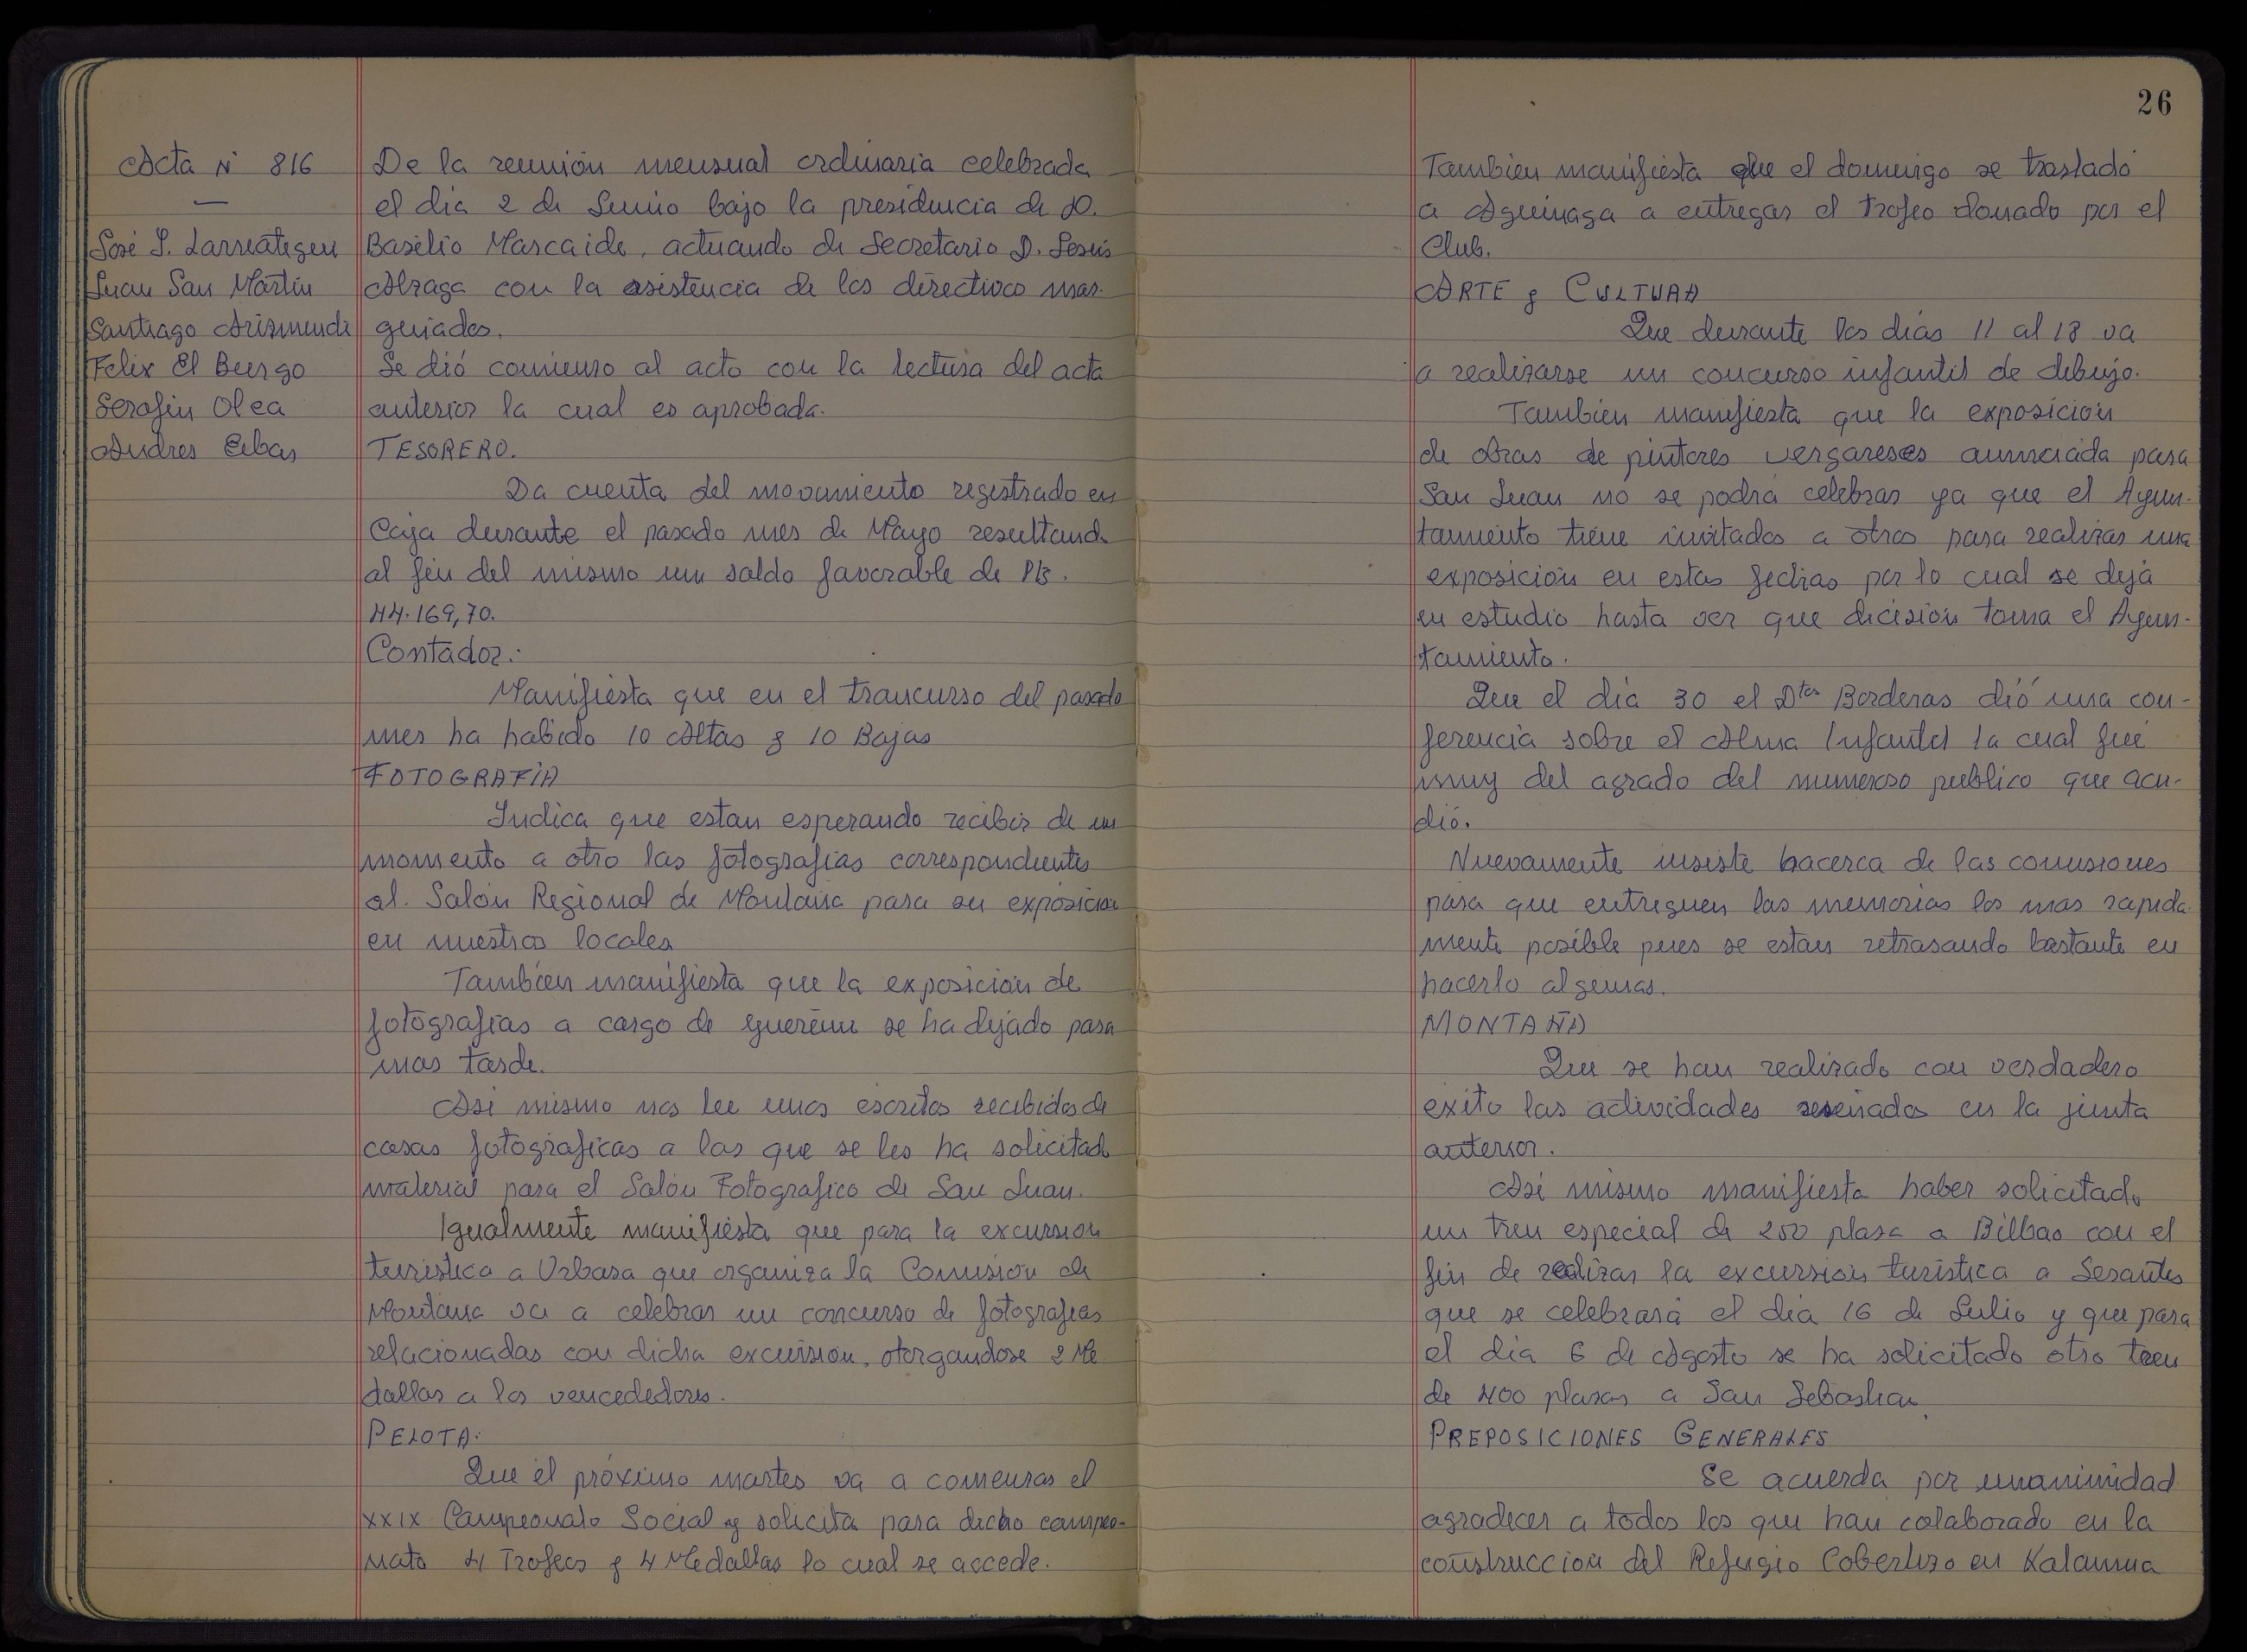 Acta Nº 816
José I. Larreategui
Juan San Martin
Santiago Arizmendi
Felix El Burgo
Serafin Olea
Andres Eibar
De la reunión mensual ordinaria celebrada
el dia 2 de Junio bajo la presidencia de D.
Basilio Mascaide, actuando de Secretario D. Jesús
Alzaga con la asistencia de los directivos mar-
guiados.
Se dió comienzo al acto con la lectura del acta
anterior la cual es aprobada.
TESORERO.
Da cuenta del movimiento registrado en
Caja durante el pasado mes de Mayo resultando
al fin del mismo un saldo favorable de Pts.
44.169,70.
Contador.
Manifiesta que en el trancurso del pasado
mes ha habido 10 Altas y 10 Bajas
FOTOGRAFÍA
Indica que estan esperando recibir de un
momento a otro las fotografias correspondientes
al Salón Regional de Montaña para su exposicion
en nuestros locales
Tambien manifiesta que la exposición de
fotografias a cargo de Gueréñu se ha dejado para
mas tarde.
Asi mismo nos lee unos escritos recibidos de
casas fotograficas a las que se les ha solicitado
material para el Salón Fotografico de San Juan.
Igualmente manifiesta que para la excursion
turistica a Urbasa que organiza la Comision de
Montaña va a celebrar un concurso de fotografias
relacionadas con dicha excursion, otorgandose 2 Me-
dallas a los vencededores.
PELOTA:
Que el próximo martes va a comenzar el
XXIX Campeonato Social y solicita para dicho campeo-
nato 4 Trofeos y 4 Medallas lo cual se accede.
26
Tambien manifiesta que el domingo se traslado
a Aguinaga a entregar el trofeo donado por el
Club.
ARTE y CULTURA
Que durante los dias 11 al 18 va
a realizarse un concurso infantil de dibujo.
Tambien manifiesta que la exposicion
de obras de pintores vergareses anunciada para
San Juan no se podrá celebrar ya que el Ayun-
tamiento tiene invitados a otros para realizar una
exposición en estas fechas por lo cual se deja
en estudio hasta ver que decisión toma el Ayun-
tamiento.
Que el dia 30 el Dtor Borderas dió una con-
ferencia sobre el Alma Infantil la cual fue
muy del agrado del numeroso publico que acu-
dió.
Nuevamente insiste hacerca de las comisiones
para que entreguen las memorias los mas rapida-
mente posible pues se estan retrasando bastante en
hacerlo algunas.
MONTAÑA
Que se han realizado con verdadero
éxito las actividades reseñadas en la junta
anterior.
Asi mismo manifiesta haber solicitado
un tren especial de 250 plasa a Bilbao con el
fin de realizar la excursion turistica a Serantes
que se celebrará el dia 16 de Julio y que para
el dia 6 de Agosto se ha solicitado otro tren
de 400 plazas a San Sebastian
PREPOSICIONES GENERALES
Se acuerda por unanimidad
agradecer a todos los que han colaborado en la
construccion del Refugio Cobertizo en Kalamua